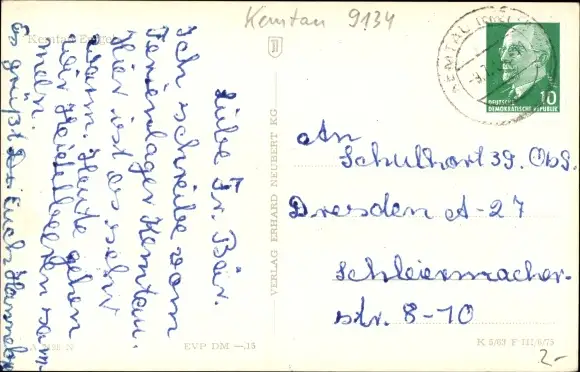 Kemtau 9134
Liebe Fr. Bär.
Ich schreibe vom
Ferienlager Kemtau.
Hier ist es sehr
warm. Heute gehen
wir Heidelbeeren sam-
meln.
Es grüßt Die Euch Hannelore
VERLAG ERHARD NEUBERT KG
EVP DM —.15
K 5/63 F 111/6/75
DEUTSCHE
DEMOKRATISCHE REPUBLIK
10
An
Schulhort 39. Obs.
Dresden A-27
Schleiermacher-
str. 8-10
2,-